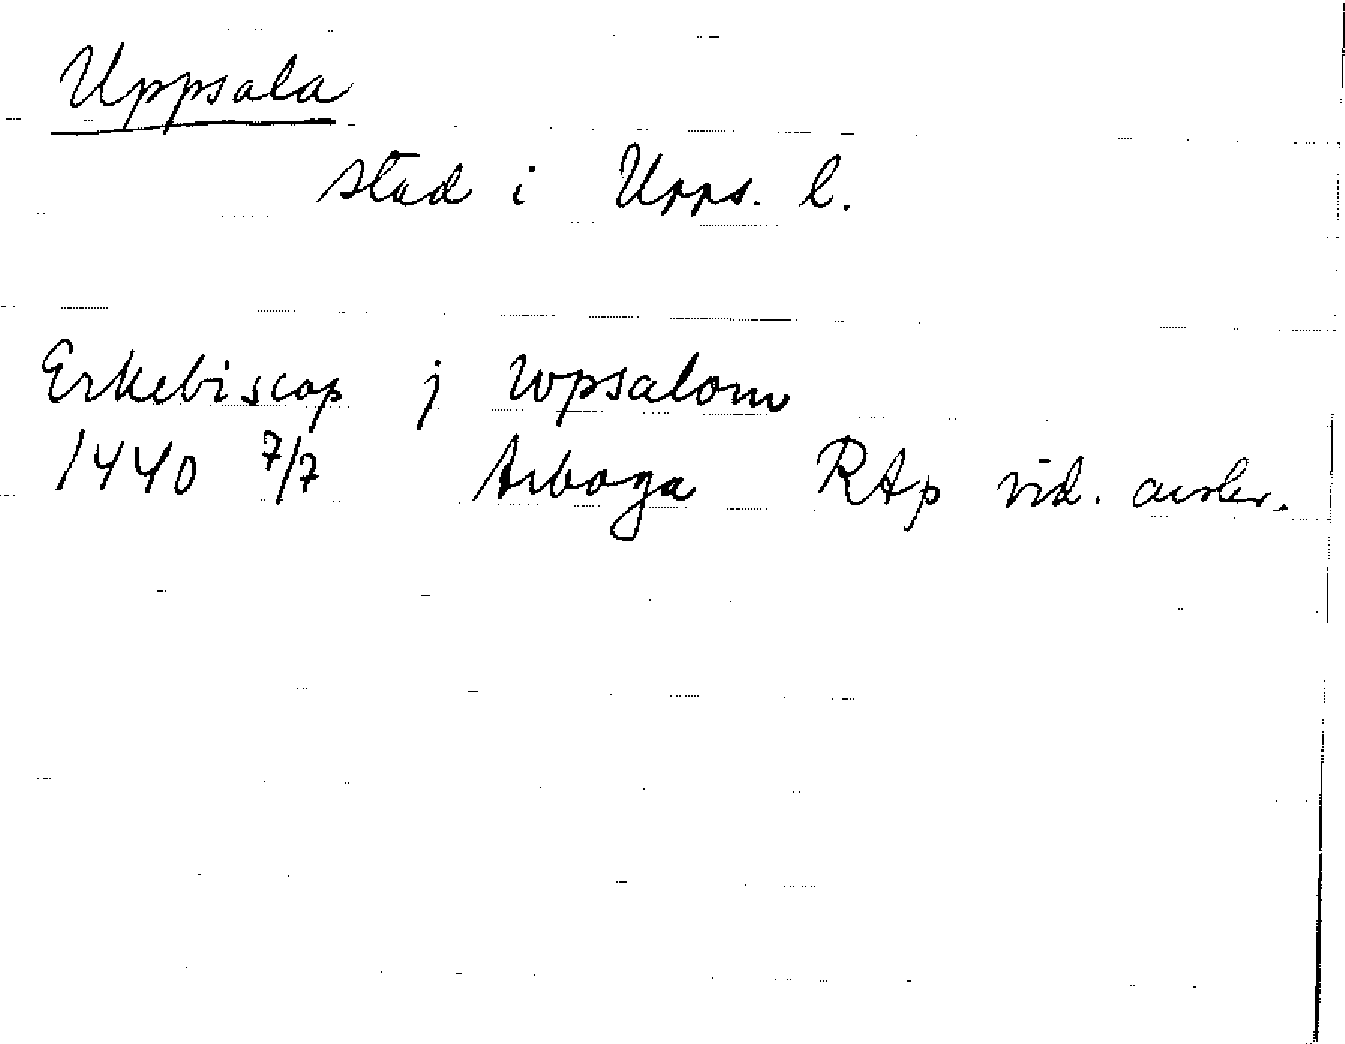 Uppsala
stad i Upps. l.
Erkebiscop j wpsalom
1440 7/7 Arboga RAp vid. avskr.